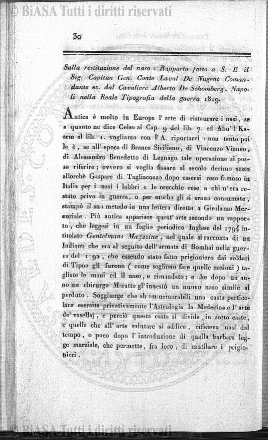 © BiASA Tutti i diritti riservati - www.biasa.org
30
Sulla restituzione del naso: Rapporto fatto a S. E. il
Sig. Capitan Gen. Conte Laval De Nugent Coman-
dante ec. dal Cavaliere Alberto De Schomberg. Napo-
li nella Reale Tipografia della guerra 1819.
Antica è molto in Europa l'arte di ristaurare i nasi, se
a quanto ne dice Celso al Cap. 9 del lib. 7. ed Abu'l Ka-
sem al lib. 1. vogliamo con l'A. riportarci: non tanto poi
lo è, se all'epoca di Branca Siciliano, di Vincenzo Vianeo,
di Alessandro Benedetto di Legnago tale operazione si pos-
sa riferire; ovvero si voglia fissare al secolo decimo sesto
allorchè Gaspare di Tagliacozzo dopo essersi reso famoso in
Italia per i nasi i labbri e le orecchie rese a chi n'era re-
stato privo in guerra, o per anche gli si erano consumate,
stampò il suo metodo in una lettera diretta a Girolamo Mer-
curiale. Più antica apparisce quest'arte secondo un rappor-
to, che leggesi in un foglio periodico Inglese del 1794 in-
titolato Gentelmans Magazine, nel quale si racconta di un
Indiano che era al seguito dell'armata di Bombai nella guer-
ra del 1792, che essendo stato fatto prigioniero dai soldati
di Tipoo gli furono (come sogliono fare quelle nazioni) ta-
gliate le mani ed il naso, e rimandato; e che dopo un an-
no un chirurgo Maratto gl'innestò un nuovo naso simile al
perduto. Soggiunge che ab immemorabili una casta partico-
lare esercita privativamente l'Astrologia la Medecina e l'arte
de' vasellaj, e perciò questa casta si divide in sotto-caste,
e quella che all'arte salutare si addice, rifaceva nasi dal
tempo, o poco dopo l'introduzione di quella barbara leg-
ge marziale, che permette, fra loro, di mutilare i prigio-
nieri.
© BiASA Tutti i diritti riservati - www.biasa.org